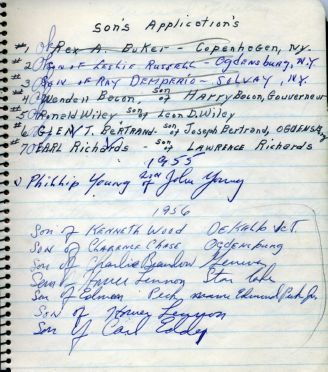 Son's Application's
#1 OK Rex A. Buker - Copenhagen, N.Y.
#2 OK Son of Leslie Russell - Ogdensburg, N.Y.
#3 OK Son of Ray Demperio - Solvay, N.Y.
#4 Wendell Bocon, son of Harry Bocon, Gouverneur
#5 OK Ronald Wiley son of Leon D. Wiley
#6 OK Glen T. Bertrand - son of Joseph Bertrand, Ogdensburg
#7 OK Earl Richards - son of Lawrence Richards
1955
Phillip Young son of John Young
1956
Son of Kenneth Wood DeKalb Jct.
Son of Clarence Chase Ogdensburg
Son of Charlie
Son of Homer Lennon Star Lake
Son of Edman Peck name Edmund Peck Jr.
Son of Homer Lennon
Son of Carl Eddy